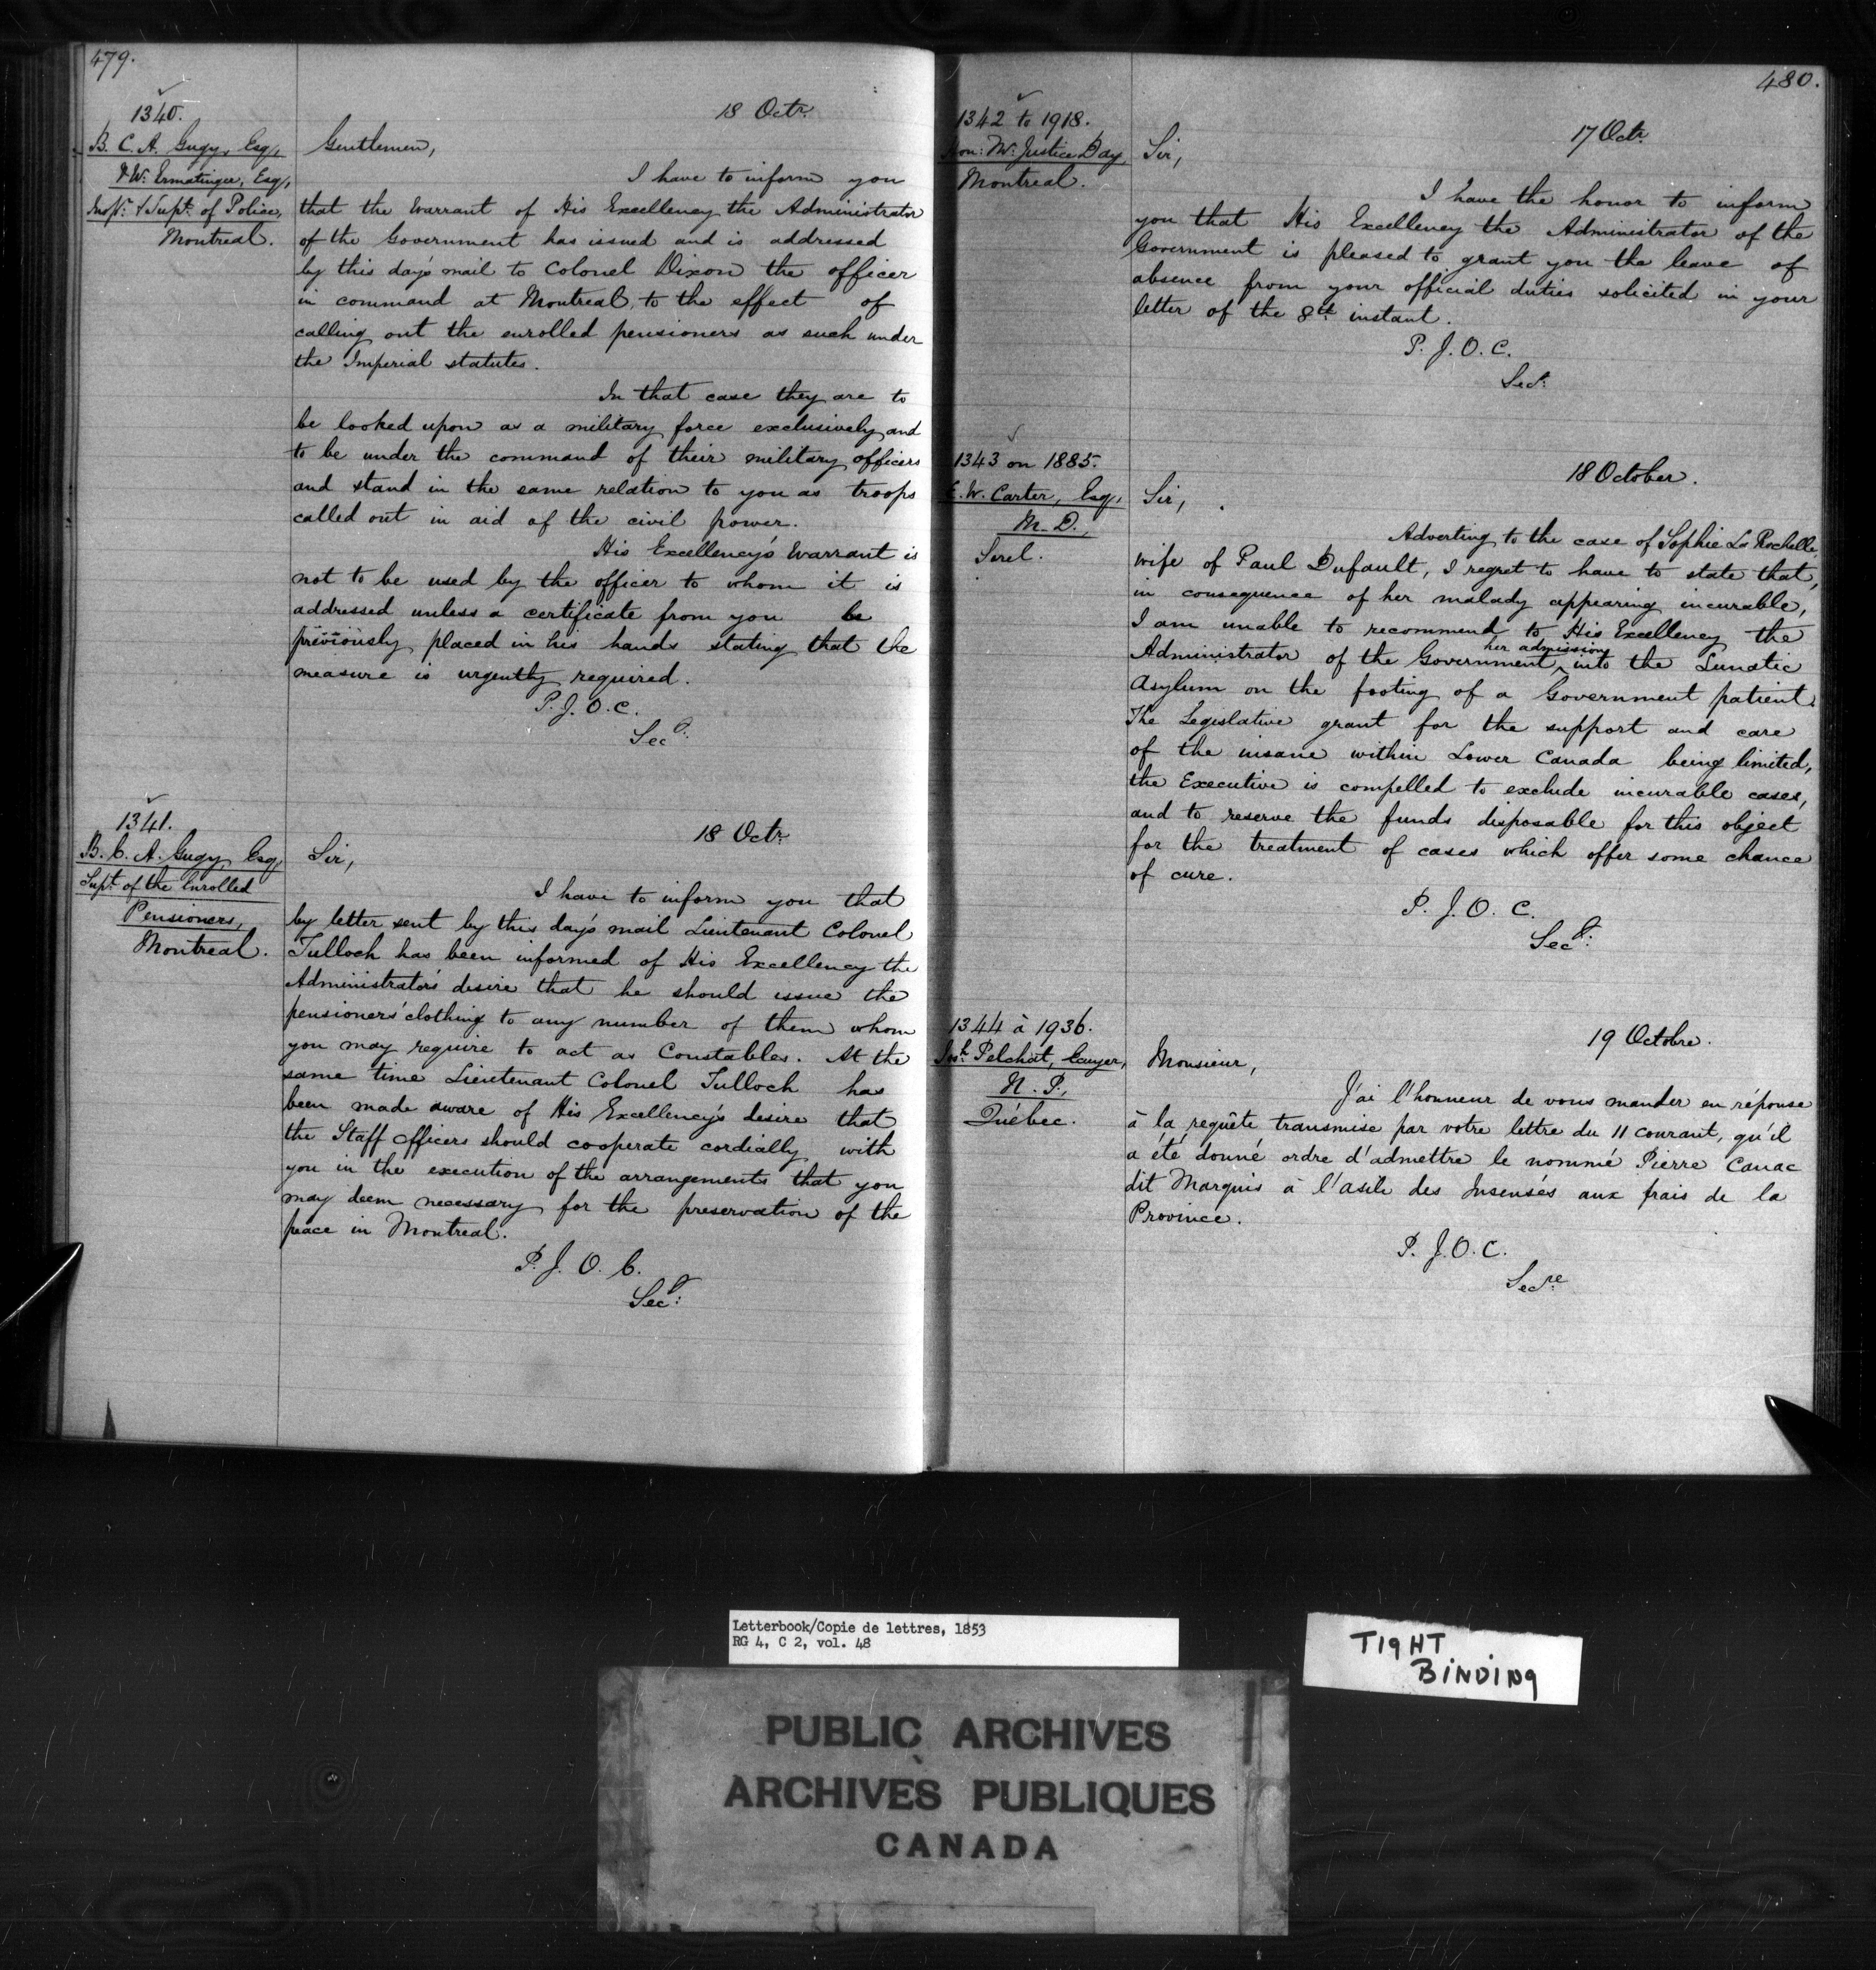 479.
1340.
B. C. A. Gugy, Esq.,
& W. Ermatinger, Esq.,
Insp.r & Supt. of Police,
Montreal.
18 Octr.
Gentlemen,
I have to inform you
that the Warrant of His Excellency the Administrator
of the Government has issued and is addressed
by this day's mail to Colonel Dixon the officer
in command at Montreal, to the effect of
calling out the enrolled pensioners as such under
the Imperial statutes.
In that case they are to
be looked upon as a military force exclusively and
to be under the command of their military officers
and stand in the same relation to you as troops
called out in aid of the civil power.
His Excellency's Warrant is
not to be used by the officer to whom it is
addressed unless a certificate from you be
previously placed in his hands stating that the
measure is urgently required.
P. J. O. C.
Secy.
1341.
B. C. A. Gugy, Esq.
Supt. of the Enrolled
Pensioners,
Montreal.
18 Octr.
Sir,
I have to inform you that
by letter sent by this day's mail Lieutenant Colonel
Tulloch has been informed of His Excellency the
Administrator's desire that he should issue the
pensioners' clothing to any number of them whom
you may require to act as Constables. At the
same time Lieutenant Colonel Tulloch has
been made aware of His Excellency's desire that
the Staff Officers should cooperate cordially with
you in the execution of the arrangements that you
may deem necessary for the preservation of the
peace in Montreal.
P. J. O. C.
Secy:
480.
1342 to 1918.
Hon: Mr. Justice Day,
Montreal.
17 Octr.
Sir,
I have the honor to inform
you that His Excellency the Administrator of the
Government is pleased to grant you the leave of
absence from your official duties solicited in your
letter of the 8th instant.
P. J. O. C.
Secy.
1343 on 1885.
E. W. Carter, Esq.,
M. D.,
Sorel.
18 October.
Sir,
Adverting to the case of Sophie La Rochelle,
wife of Paul Dufault, I regret to have to state that,
in consequence of her malady appearing incurable,
I am unable to recommend to His Excellency the
Administrator of the Government, her admission into the Lunatic
Asylum on the footing of a Government patient.
The Legislative grant for the support and care
of the insane within Lower Canada being limited,
the Executive is compelled to exclude incurable cases,
and to reserve the funds disposable for this object
for the treatment of cases which offer some chance
of cure.
P. J. O. C.
Secy:
1344 à 1936.
Josh. Pelchat, Ecuyer,
N. P.,
Québec.
19 Octobre.
Monsieur,
J'ai l'honneur de vous mander en réponse
à la requête transmise par votre lettre du 11 courant, qu'il
a été donné ordre d'admettre le nommé Pierre Canac
dit Marquis à l'asile des Insensés aux frais de la
Province.
P. J. O. C.
Secre.
Letterbook/Copie de lettres, 1853
RG 4, C 2, vol. 48
TIGHT
BINDING
PUBLIC ARCHIVES
ARCHIVES PUBLIQUES
CANADA